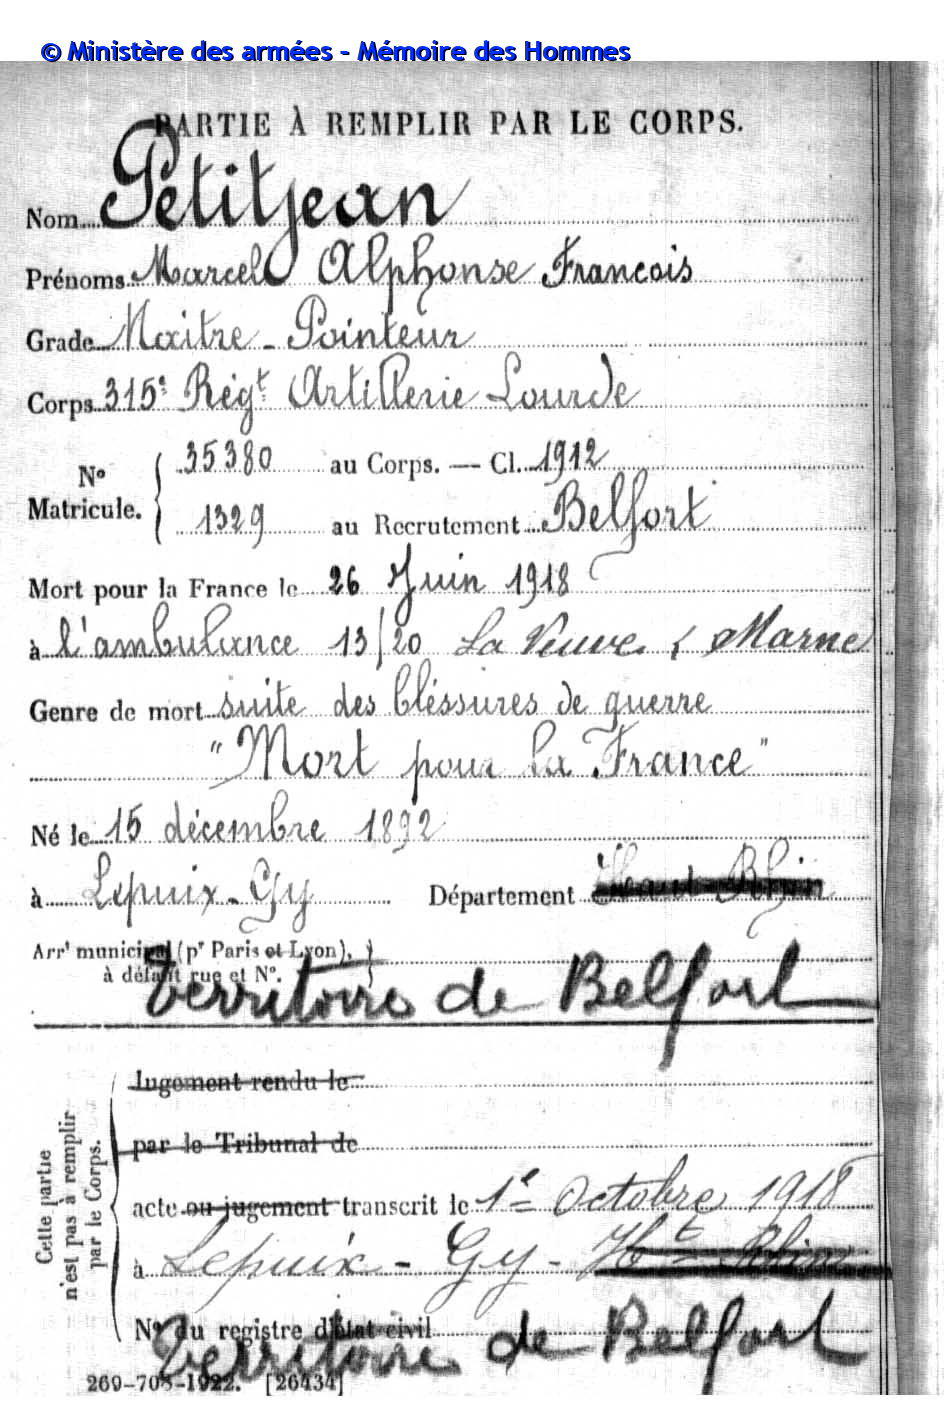 © Ministère des armées - Mémoire des Hommes
PARTIE À REMPLIR PAR LE CORPS.
Nom Petitjean
Prénoms Marcel Alphonse Francois
Grade Maitre - Pointeur
Corps 315e Régt Artillerie Lourde
No Matricule. { 35380 au Corps. — Cl. 1912
1329 au Recrutement Belfort
Mort pour la France le 26 Juin 1918
à l'ambulance 13/20 La Veuve ( Marne
Genre de mort suite des bléssures de guerre
"Mort pour la France"
Né le 15 décembre 1892
à Lepuix-Gy Département Haut Rhin
Arrt municipal (pr Paris et Lyon), }
à défaut rue et No.
Territoire de Belfort
Cette partie n'est pas à remplir par le Corps.
Jugement rendu le
par le Tribunal de
acte ou jugement transcrit le 1er Octobre 1918
à Lepuix - Gy - Ht Rhin
No du registre d'état civil
Territoire de Belfort
269-708-1922. [26434]